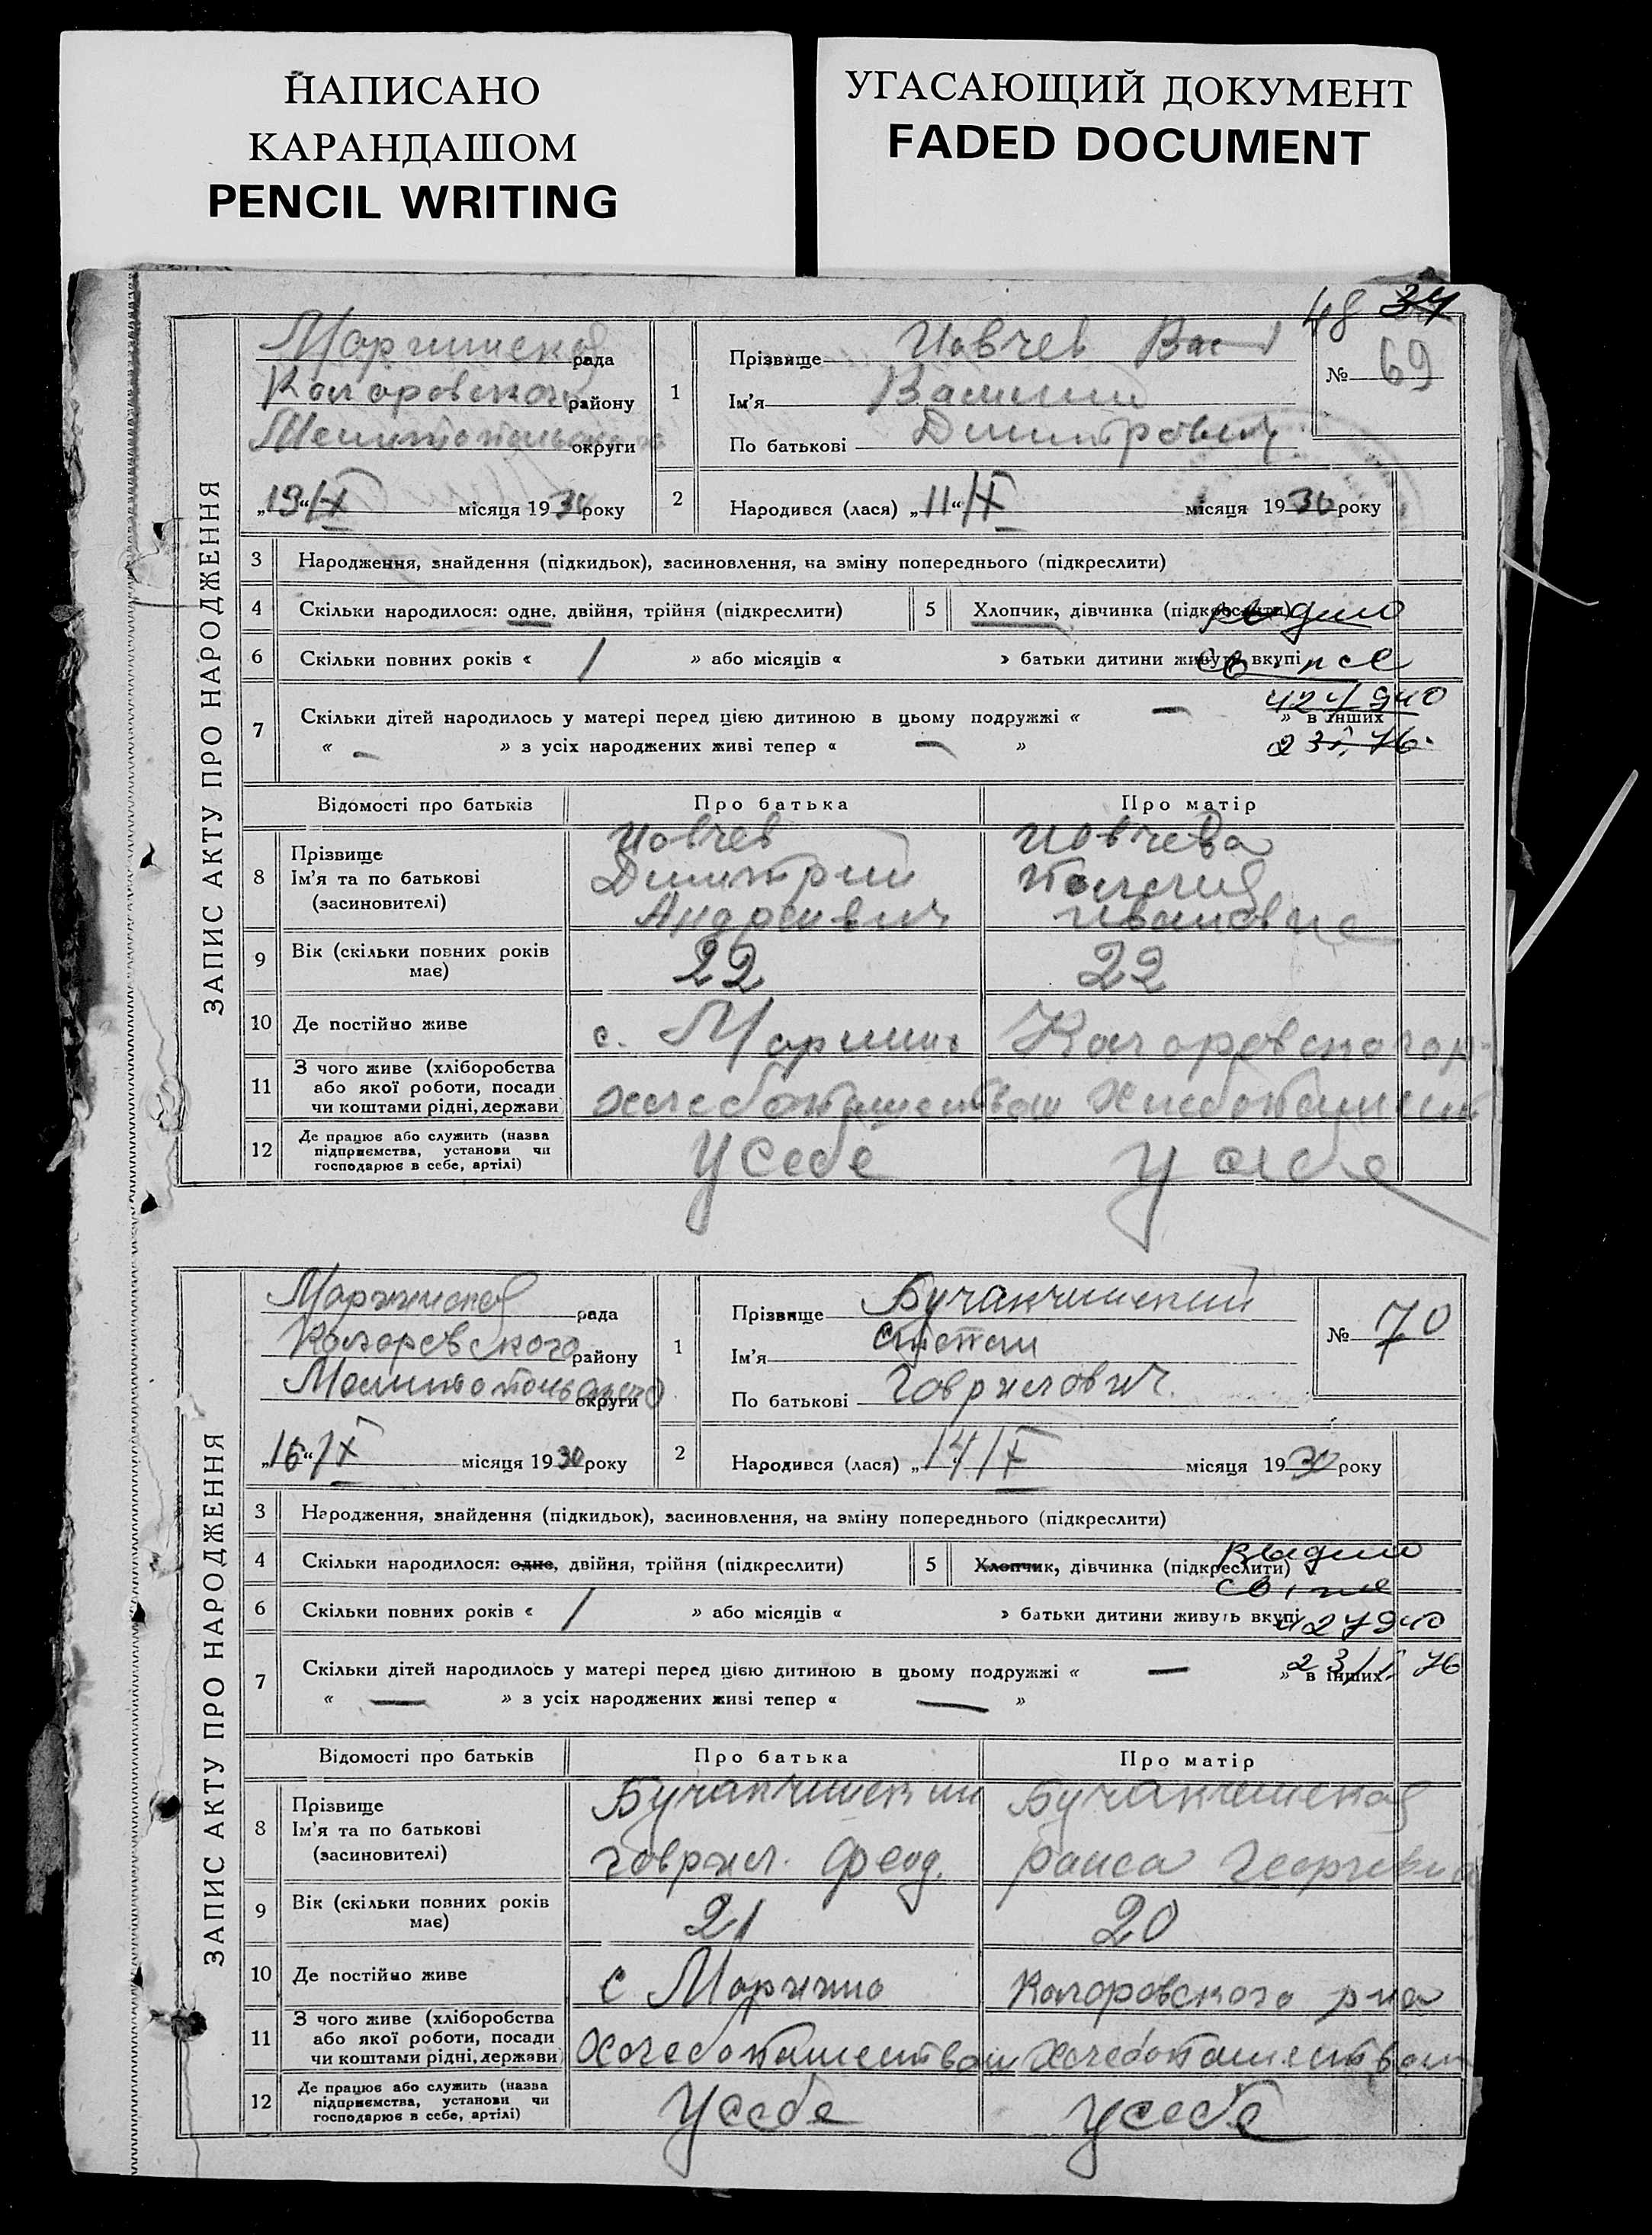 НАПИСАНО
КАРАНДАШОМ
PENCIL WRITING
УГАСАЮЩИЙ ДОКУМЕНТ
FADED DOCUMENT
48 34
ЗАПИС АКТУ ПРО НАРОДЖЕННЯ
рада
Коларовского району
Мелитопольского округи
„13“ IX місяця 1930 року
1 Прізвище Иовчев
Ім'я Василий
По батькові Димитрович
№ 69
2 Народився (лася) „11“ IX місяця 1930 року
3 Народження, знайдення (підкидьок), засиновлення, на зміну попереднього (підкреслити)
4 Скільки народилося: одне, двійня, трійня (підкреслити)
5 Хлопчик, дівчинка (підкреслити)
Выдано
6 Скільки повних років « 1 » або місяців « » батьки дитини живуть вкупі
7 Скільки дітей народилось у матері перед цією дитиною в цьому подружжі « — » в інших
« — » з усіх народжених живі тепер « — »
Відомості про батьків Про батька Про матір
8 Прізвище
Ім'я та по батькові
(засиновителі)
Иовчев
Димитрий
Андреевич
Иовчева
Ивановна
9 Вік (скільки повних років має) 22 22
10 Де постійно живе с. Марино Коларовского р-
11 З чого живе (хліборобства
або якої роботи, посади
чи коштами рідні, держави
Хлебопашеством Хлебопашеств
12 Де працює або служить (назва
підприємства, установи чи
господарює в себе, артілі)
У себе У себе
ЗАПИС АКТУ ПРО НАРОДЖЕННЯ
рада
Коларовского району
Мелитопольского округи
„16“ IX місяця 1930 року
1 Прізвище Бучакчийский
Ім'я Степан
По батькові Гаврилович.
№ 70
2 Народився (лася) „14 IX місяця 1930 року
3 Народження, знайдення (підкидьок), засиновлення, на зміну попереднього (підкреслити)
4 Скільки народилося: одне, двійня, трійня (підкреслити)
5 Хлопчик, дівчинка (підкреслити)
Выдано
6 Скільки повних років « 1 » або місяців « » батьки дитини живуть вкупі
427940
7 Скільки дітей народилось у матері перед цією дитиною в цьому подружжі « — » в інших
« — » з усіх народжених живі тепер « — »
Відомості про батьків Про батька Про матір
8 Прізвище
Ім'я та по батькові
(засиновителі)
Бучакчийский
Гаврил. Феод.
Бучакчийская
Раиса Георгиевна
9 Вік (скільки повних років має) 21 20
10 Де постійно живе с Марино Коларовского р-на
11 З чого живе (хліборобства
або якої роботи, посади
чи коштами рідні, держави
Хлебопашеством Хлебопашеством
12 Де працює або служить (назва
підприємства, установи чи
господарює в себе, артілі)
У себе У себе